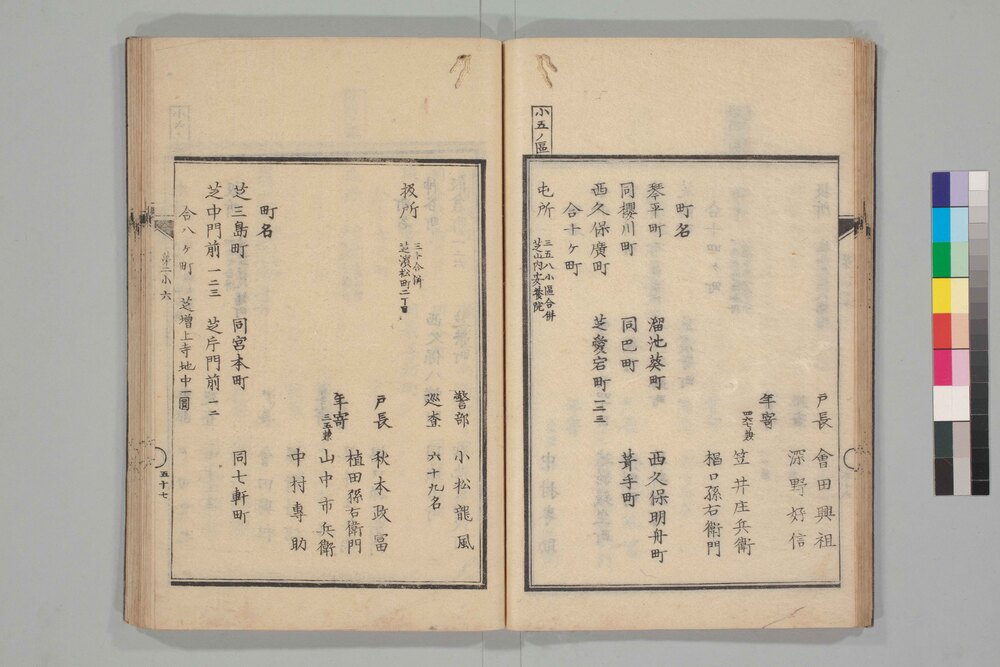 小五ノ區
戸長 會田興祖
深野好信
年寄 四六七兼 笠井庄兵衛
椙口孫右衛門
町名
琴平町 溜池葵町 西久保明舟町
同櫻川町 同巴町 葺手町
西久保廣町 芝愛宕町一二三
合十ヶ町
屯所 三五八小區合併
芝山内安養院
警部 小松龍風
巡査 六十九名
扱所 三ト合併
芝濱松町二丁目
戸長 秋本政冨
植田孫右衛門
年寄 三五兼 山中市兵衛
中村專助
町名
芝三島町 同宮本町 同七軒町
芝中門前一二三 芝片門前一二
合八ヶ町 芝增上寺地中一圓
第二小六
五十七